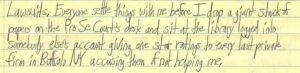 Lawsuits, Everyone settle things with me before I drop a giant stack of
papers on the Pro Se Court's desk and sit at the library logged into
somebody else's account giving one star ratings to every last private
firm in Buffalo NY accusing them of not helping me,